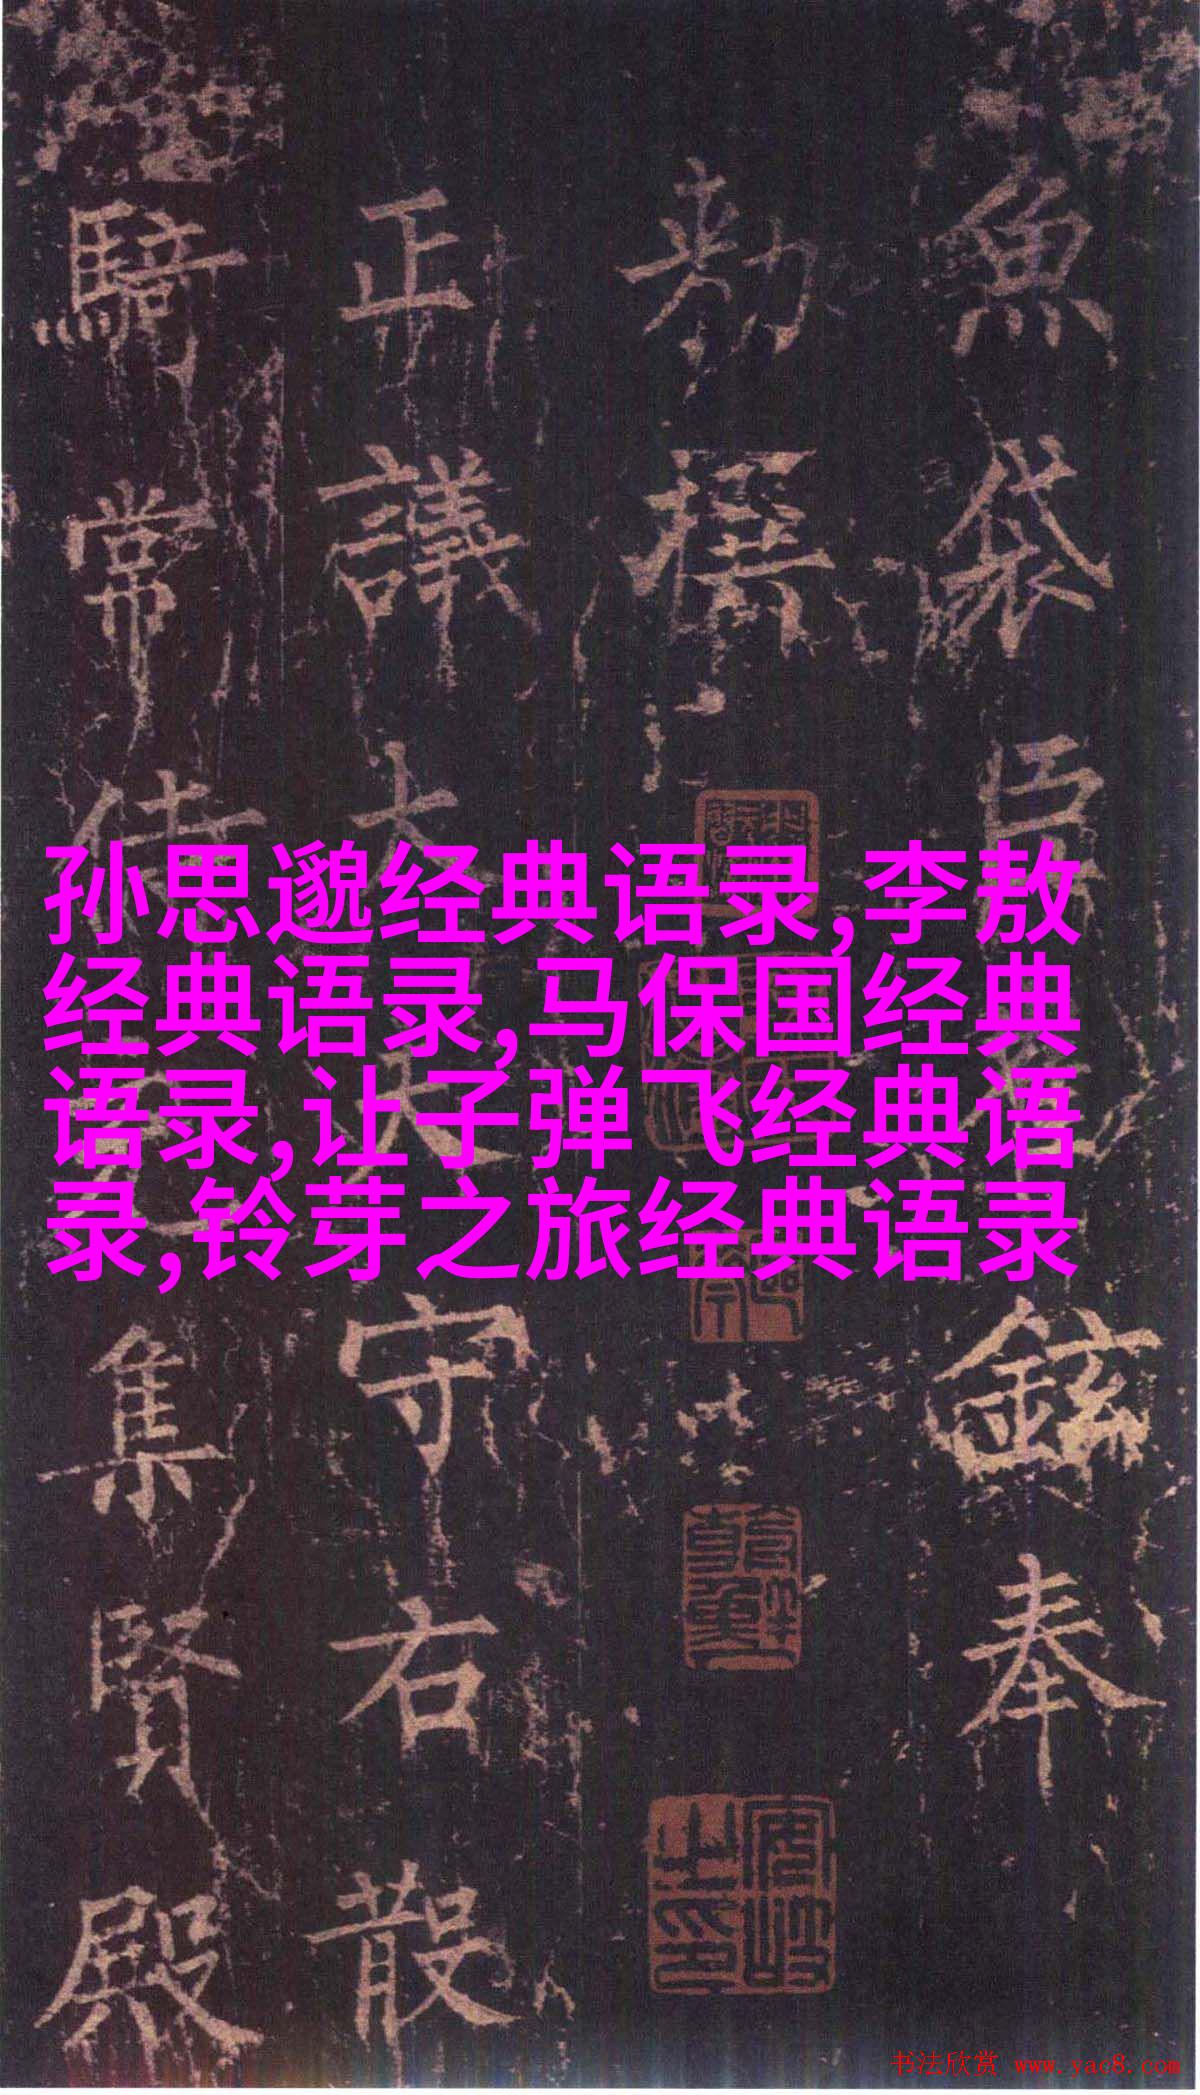 魚袋臣鉉奉
勑撰
正議大夫守右散
騎常侍集賢殿
孙思邈经典语录,李敖
经典语录,马保国经典
语录,让子弹飞经典语
录,铃芽之旅经典语录
书法欣赏 www.yac8.com